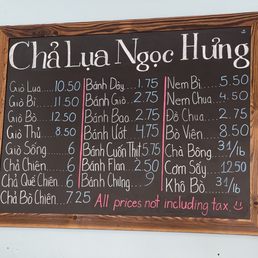 Chả Lụa Ngọc Hưng
Giò Lụa....10.50
Giò Bì......11.50
Giò Bò.....12.50
Giò Thủ.....8.50
Giò Sống.....6
Chả Chiên.....6
Chả Quế Chiên.6
Chả Bò Chiên..7.25
Bánh Dầy..1.75
Bánh Giò....2.75
Bánh Bao..2.75
Bánh Ướt..4.75
Bánh Cuốn Thịt 5.75
Bánh Flan...2.50
Bánh Chưng...9
Nem Bì.....5.50
Nem Chua..4.50
Đồ Chua....2.75
Bò Viên....8.50
Chà Bông...31/lb
Cơm Sấy...12.50
Khô Bò......31/lb
All prices not including tax